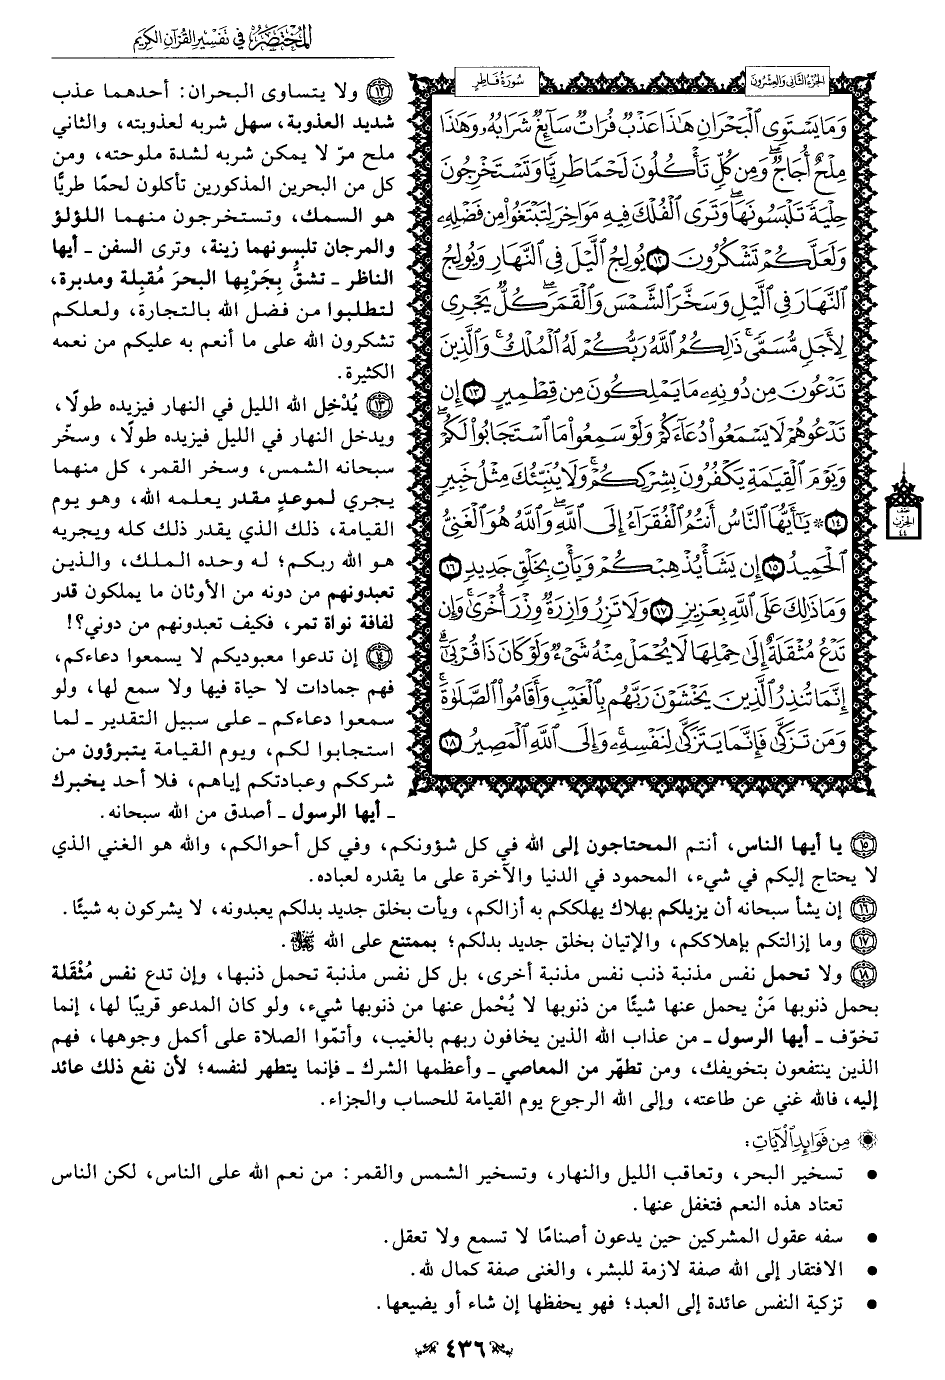 المختصر في تفسير القرآن الكريم
الجزء الثاني والعشرون
سورة فاطر
وَمَا يَسْتَوِي الْبَحْرَانِ هَٰذَا عَذْبٌ فُرَاتٌ سَائِغٌ شَرَابُهُ وَهَٰذَا
مِلْحٌ أُجَاجٌ ۖ وَمِن كُلٍّ تَأْكُلُونَ لَحْمًا طَرِيًّا وَتَسْتَخْرِجُونَ
حِلْيَةً تَلْبَسُونَهَا ۖ وَتَرَى الْفُلْكَ فِيهِ مَوَاخِرَ لِتَبْتَغُوا مِن فَضْلِهِ
وَلَعَلَّكُمْ تَشْكُرُونَ ١٢ يُولِجُ اللَّيْلَ فِي النَّهَارِ وَيُولِجُ
النَّهَارَ فِي اللَّيْلِ وَسَخَّرَ الشَّمْسَ وَالْقَمَرَ ۖ كُلٌّ يَجْرِي
لِأَجَلٍ مُّسَمًّى ۚ ذَٰلِكُمُ اللَّهُ رَبُّكُمْ لَهُ الْمُلْكُ ۚ وَالَّذِينَ
تَدْعُونَ مِن دُونِهِ مَا يَمْلِكُونَ مِن قِطْمِيرٍ ١٣ إِن
تَدْعُوهُمْ لَا يَسْمَعُوا دُعَاءَكُمْ وَلَوْ سَمِعُوا مَا اسْتَجَابُوا لَكُمْ ۖ
وَيَوْمَ الْقِيَامَةِ يَكْفُرُونَ بِشِرْكِكُمْ ۚ وَلَا يُنَبِّئُكَ مِثْلُ خَبِيرٍ
١٤ ۞ يَا أَيُّهَا النَّاسُ أَنتُمُ الْفُقَرَاءُ إِلَى اللَّهِ ۖ وَاللَّهُ هُوَ الْغَنِيُّ
الْحَمِيدُ ١٥ إِن يَشَأْ يُذْهِبْكُمْ وَيَأْتِ بِخَلْقٍ جَدِيدٍ ١٦
وَمَا ذَٰلِكَ عَلَى اللَّهِ بِعَزِيزٍ ١٧ وَلَا تَزِرُ وَازِرَةٌ وِزْرَ أُخْرَىٰ ۚ وَإِن
تَدْعُ مُثْقَلَةٌ إِلَىٰ حِمْلِهَا لَا يُحْمَلْ مِنْهُ شَيْءٌ وَلَوْ كَانَ ذَا قُرْبَىٰ ۗ
إِنَّمَا تُنذِرُ الَّذِينَ يَخْشَوْنَ رَبَّهُم بِالْغَيْبِ وَأَقَامُوا الصَّلَاةَ ۚ
وَمَن تَزَكَّىٰ فَإِنَّمَا يَتَزَكَّىٰ لِنَفْسِهِ ۚ وَإِلَى اللَّهِ الْمَصِيرُ ١٨
نصف
الحزب
٤٤
١٢ ولا يتساوى البحران: أحدهما عذب
شديد العذوبة، سهل شربه لعذوبته، والثاني
ملح مرّ لا يمكن شربه لشدة ملوحته، ومن
كل من البحرين المذكورين تأكلون لحمًا طريًّا
هو السمك، وتستخرجون منهما اللؤلؤ
والمرجان تلبسونهما زينة، وترى السفن ـ أيها
الناظر ـ تشقُّ بِجَرْيِها البحرَ مُقبِلة ومدبرة،
لتطلبوا من فضل الله بالتجارة، ولعلكم
تشكرون الله على ما أنعم به عليكم من نعمه
الكثيرة.
١٣ يُدْخِل الله الليل في النهار فيزيده طولًا،
ويدخل النهار في الليل فيزيده طولًا، وسخّر
سبحانه الشمس، وسخر القمر، كل منهما
يجري لموعد مقدر يعلمه الله، وهو يوم
القيامة، ذلك الذي يقدر ذلك كله ويجريه
هو الله ربكم؛ له وحده الملك، والذين
تعبدونهم من دونه من الأوثان ما يملكون قدر
لفافة نواة تمر، فكيف تعبدونهم من دوني؟!
١٤ إن تدعوا معبوديكم لا يسمعوا دعاءكم،
فهم جمادات لا حياة فيها ولا سمع لها، ولو
سمعوا دعاءكم ـ على سبيل التقدير ـ لما
استجابوا لكم، ويوم القيامة يتبرؤون من
شرككم وعبادتكم إياهم، فلا أحد يخبرك
ـ أيها الرسول ـ أصدق من الله سبحانه.
١٥ يا أيها الناس، أنتم المحتاجون إلى الله في كل شؤونكم، وفي كل أحوالكم، والله هو الغني الذي
لا يحتاج إليكم في شيء، المحمود في الدنيا والآخرة على ما يقدره لعباده.
١٦ إن يشأ سبحانه أن يزيلكم بهلاك يهلككم به أزالكم، ويأت بخلق جديد بدلكم يعبدونه، لا يشركون به شيئًا.
١٧ وما إزالتكم بإهلاككم، والإتيان بخلق جديد بدلكم؛ بممتنع على الله.
١٨ ولا تحمل نفس مذنبة ذنب نفس مذنبة أخرى، بل كل نفس مذنبة تحمل ذنبها، وإن تدع نفس مُثْقَلة
بحمل ذنوبها مَنْ يحمل عنها شيئًا من ذنوبها لا يُحْمل عنها من ذنوبها شيء، ولو كان المدعو قريبًا لها، إنما
تخوّف ـ أيها الرسول ـ من عذاب الله الذين يخافون ربهم بالغيب، وأتمّوا الصلاة على أكمل وجوهها، فهم
الذين ينتفعون بتخويفك، ومن تطهّر من المعاصي ـ وأعظمها الشرك ـ فإنما يتطهر لنفسه؛ لأن نفع ذلك عائد
إليه، فالله غني عن طاعته، وإلى الله الرجوع يوم القيامة للحساب والجزاء.
من فوائد الآيات:
• تسخير البحر، وتعاقب الليل والنهار، وتسخير الشمس والقمر: من نعم الله على الناس، لكن الناس
تعتاد هذه النعم فتغفل عنها.
• سفه عقول المشركين حين يدعون أصنامًا لا تسمع ولا تعقل.
• الافتقار إلى الله صفة لازمة للبشر، والغنى صفة كمال لله.
• تزكية النفس عائدة إلى العبد؛ فهو يحفظها إن شاء أو يضيعها.
٤٣٦